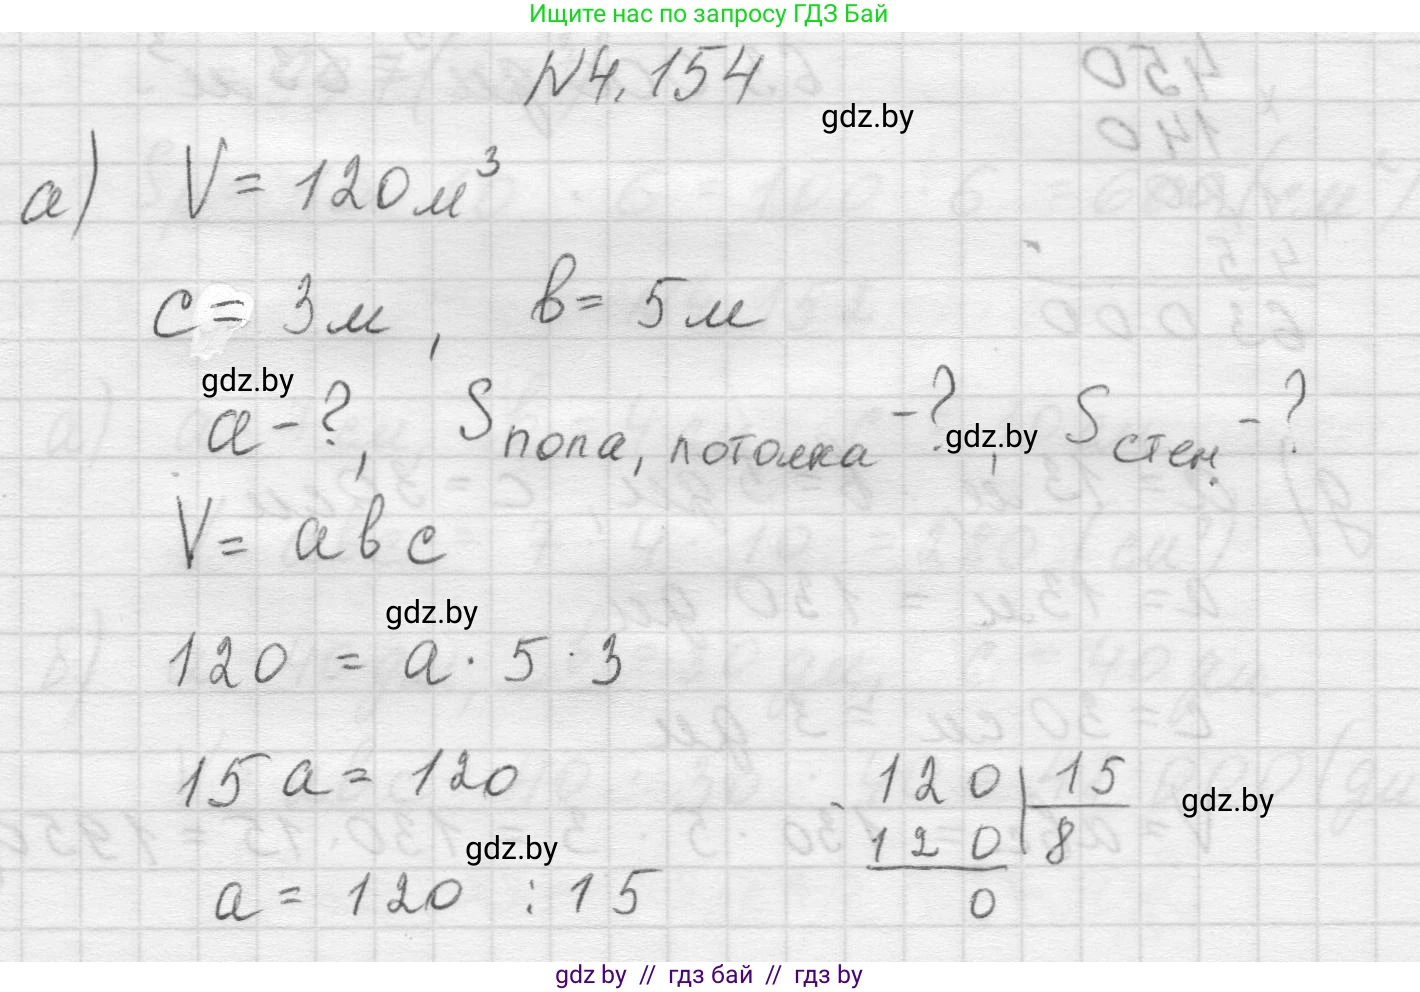 Ищите нас по запросу ГДЗ Бай
№4.154
gdz.by
а) V = 120 м³
c = 3 м, в = 5 м
gdz.by
а - ?, Sпола, потолка - ?, Sстен - ?
gdz.by
V = а в с
gdz.by
120 = а · 5 · 3
15 а = 120
- 120 | 15
gdz.by
120 8
gdz.by
0
а = 120 : 15
gdz.by // гдз бай // гдз by